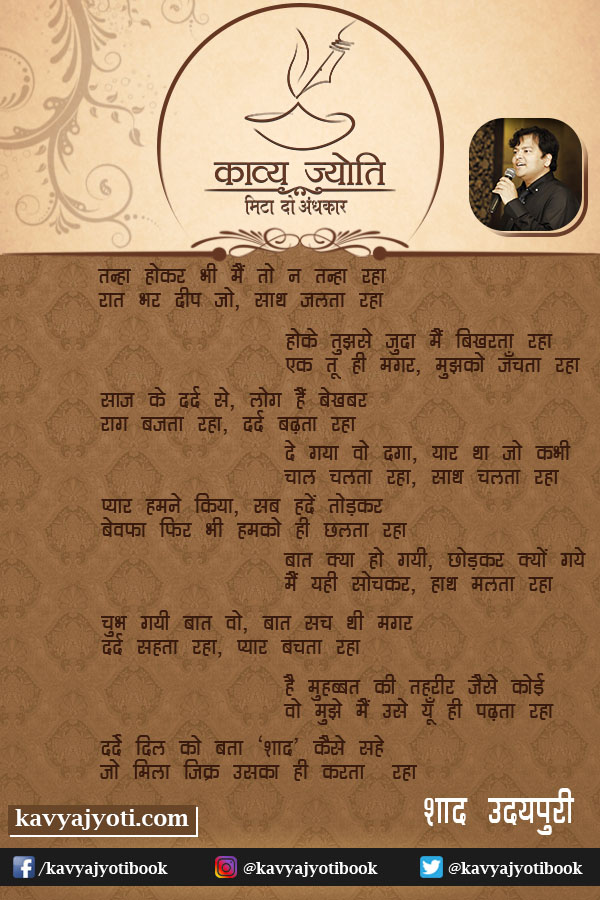 काव्य ज्योति
मिटा दो अंधकार
तन्हा होकर भी मैं तो न तन्हा रहा
रात भर दीप जो, साथ जलता रहा
होके तुझसे जुदा मैं बिखरता रहा
एक तू ही मगर, मुझको जँचता रहा
साज के दर्द से, लोग हैं बेखबर
राग बजता रहा, दर्द बढ़ता रहा
दे गया वो दगा, यार था जो कभी
चाल चलता रहा, साथ चलता रहा
प्यार हमने किया, सब हदें तोड़कर
बेवफा फिर भी हमको ही छलता रहा
बात क्या हो गयी, छोड़कर क्यों गये
मैं यही सोचकर, हाथ मलता रहा
चुभ गयी बात वो, बात सच थी मगर
दर्द सहता रहा, प्यार बचता रहा
है मुहब्बत की तहरीर जैसे कोई
वो मुझे मैं उसे यूँ ही पढ़ता रहा
दर्दे दिल को बता ‘शाद’ कैसे सहे
जो मिला जिक्र उसका ही करता रहा
शाद उदयपुरी
kavyajyoti.com
/kavyajyotibook @kavyajyotibook @kavyajyotibook